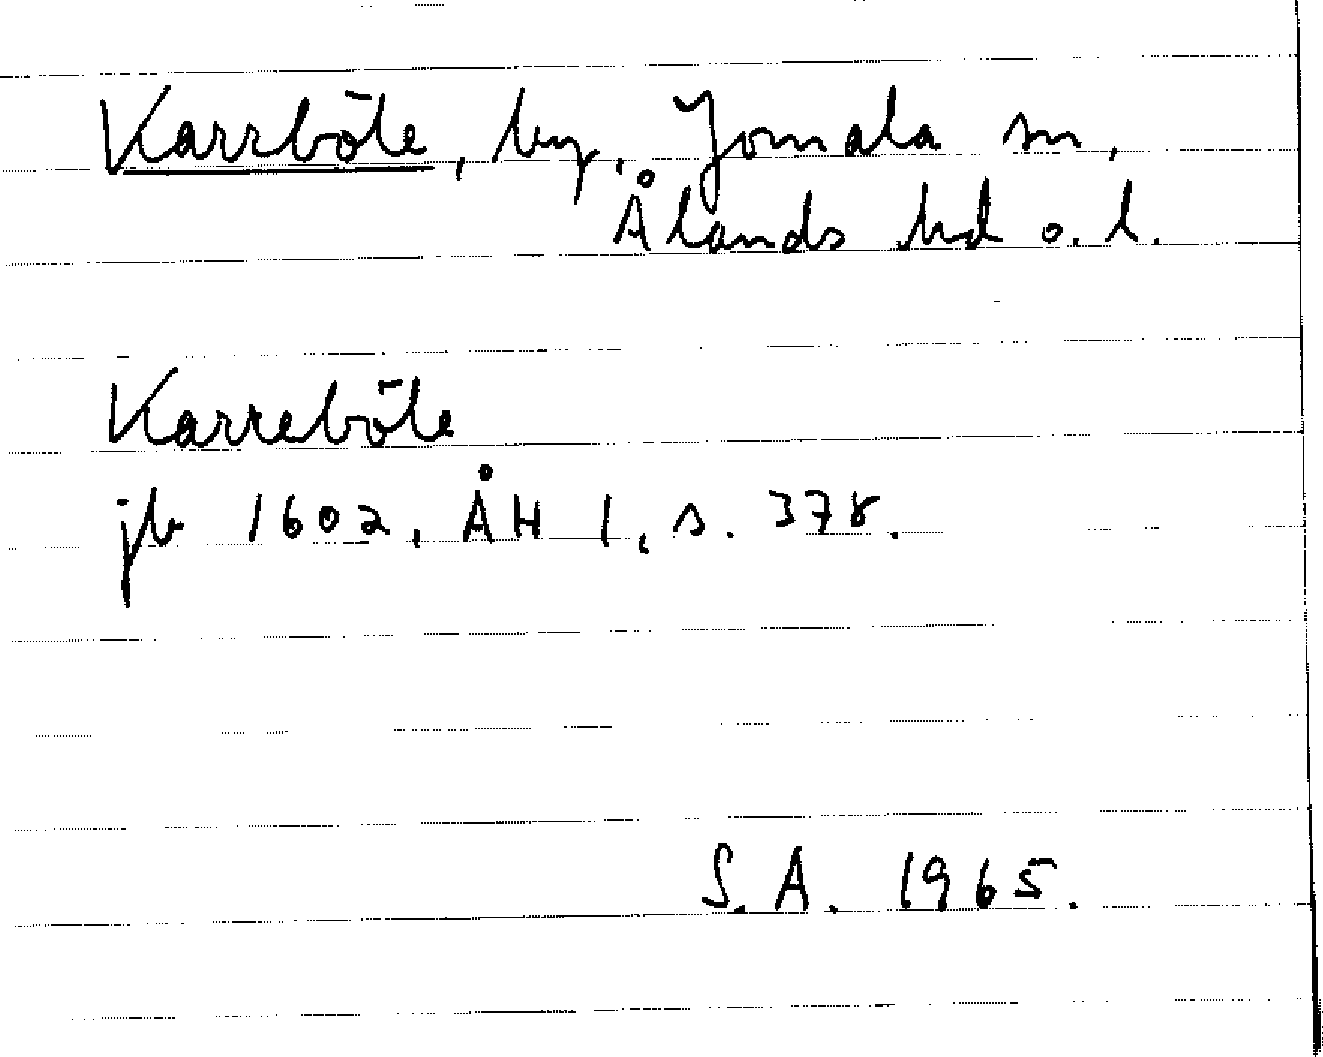 Karrböle, by, Jomala sn,
Ålands hd o. l.
Karreböle
jb 1602, ÅH 1, s. 378.
S.A. 1965.